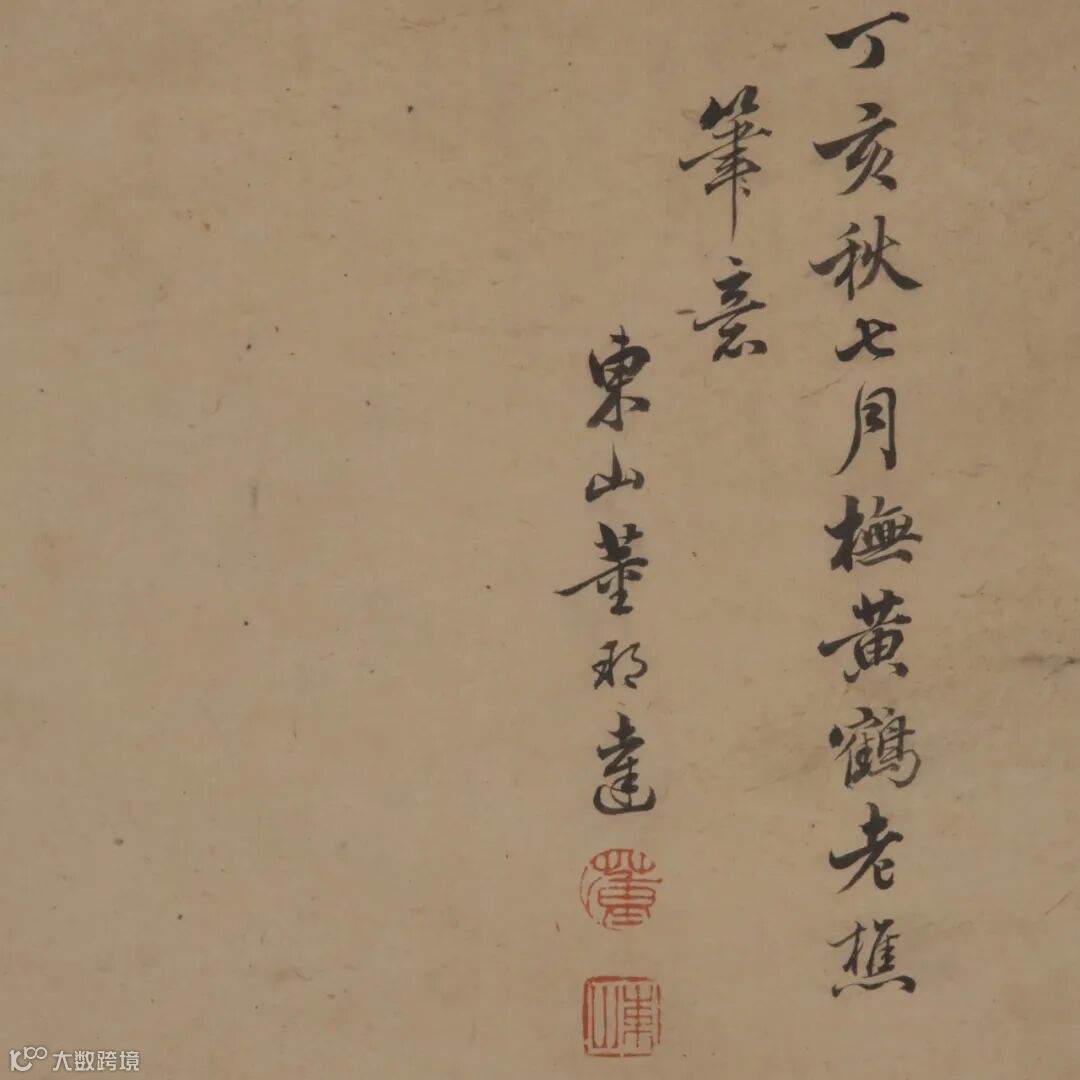 丁亥秋七月橅黃鶴老樵
筆意
東山董邦達
董
東山
大数跨境